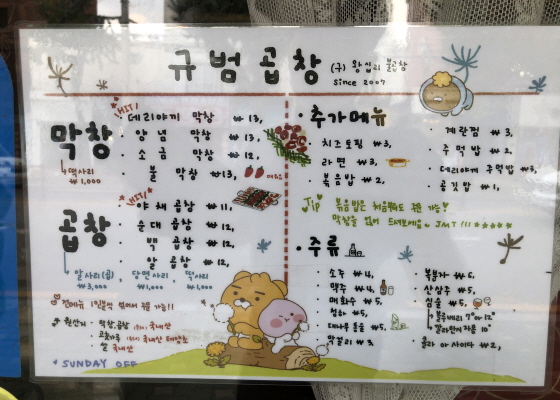 규범곱창 (구) 왕십리 불곱창
Since 2007
막창
HIT!
데리야끼 막창 ₩13,
· 양념 막창 ₩13,
· 소금 막창 ₩12,
· 불 막창 ₩13,
떡사리
₩1,000
곱창
HIT!
· 야채 곱창 ₩11,
· 순대 곱창 ₩12,
· 백 곱창 ₩12,
· 알 곱창 ₩12,
알사리(곱), 당면사리, 떡사리
₩3,000 ₩1,000 ₩1,000
전메뉴 1인분씩 섞어서 주문 가능!!
원산지 · 막창,곱창 국내산
· 고춧가루 국내산
· 쌀 국내산
* SUNDAY OFF
· 추가메뉴
· 치즈토핑 ₩3,
· 라면 ₩3,
· 볶음밥 ₩2,
· 계란찜 ₩3,
· 주먹밥 ₩2,
· 데리야끼 주먹밥 ₩3,
· 공깃밥 ₩1,
Tip 볶음밥은 처음부터도 주문 가능!
JMT!!! ★★★★★
· 주류
· 소주 ₩4,
· 맥주 ₩4,
· 매화수 ₩5,
· 청하 ₩5,
· 대나무 통술 ₩5,
· 막걸리 ₩3,
· 복분자 ₩6,
· 산삼주 ₩5,
· 심술 ₩5,
· 콜라 or 사이다 ₩2,